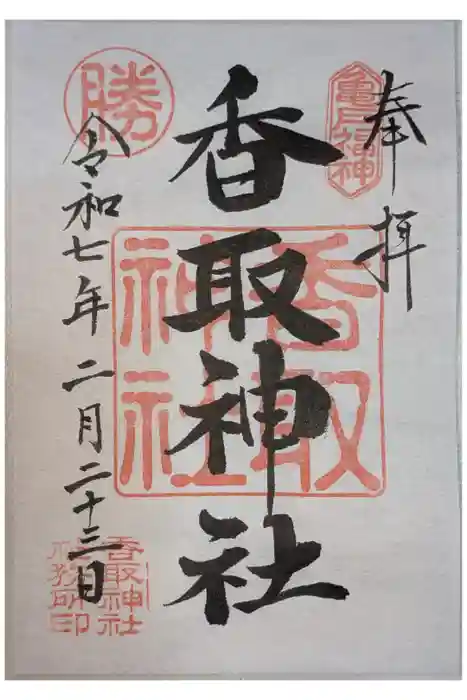 奉拝
亀戸福神
香取神社
香取
神社
勝
令和七年二月二十三日
香取神社
社務所印